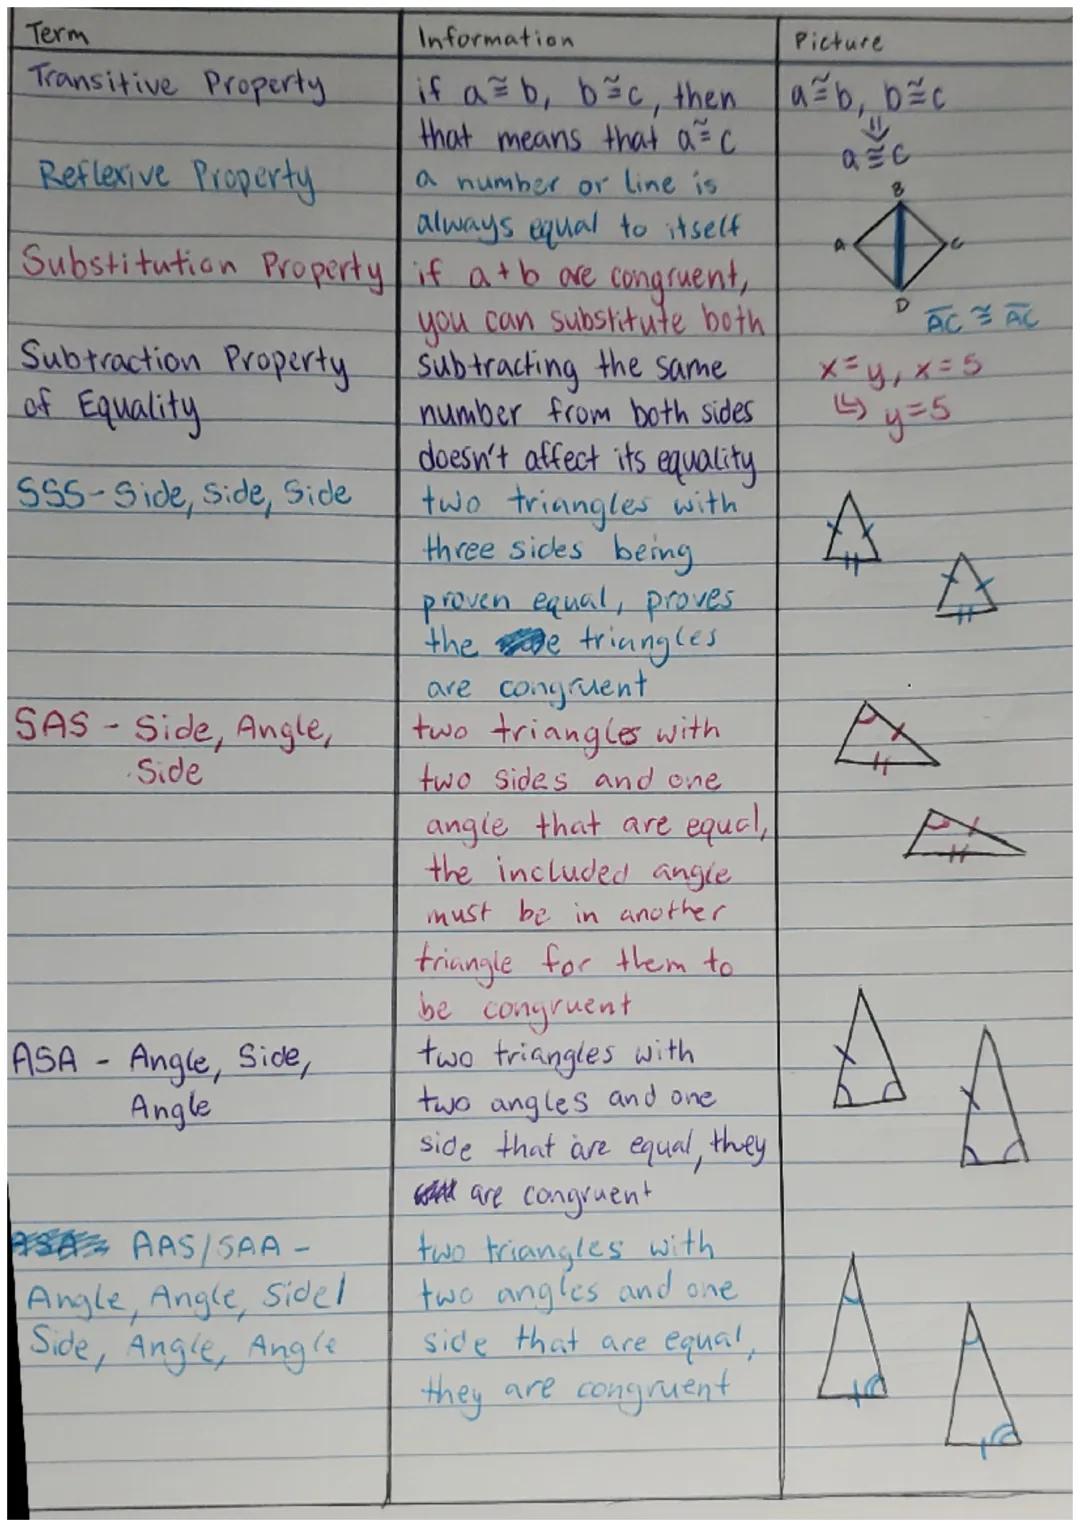 Term Information Picture
Transitive Property
if a≅b, b≅c, then
that means that a≅c
a≅b, b≅c
⇓
a≅c
Reflexive Property
a number or line is
always equal to itself
B
A
C
D
AC ≅ AC
Substitution Property
if a+b are congruent,
you can substitute both
x=y, x=5
↳ y=5
Subtraction Property
of Equality
subtracting the same
number from both sides
doesn't affect its equality
SSS - Side, Side, Side
two triangles with
three sides being
proven equal, proves
the triangles
are congruent
SAS - Side, Angle,
Side
two triangles with
two sides and one
angle that are equal,
the included angle
must be in another
triangle for them to
be congruent
ASA - Angle, Side,
Angle
two triangles with
two angles and one
side that are equal, they
are congruent
AAS/SAA -
Angle, Angle, Side/
Side, Angle, Angle
two triangles with
two angles and one
side that are equal,
they are congruent